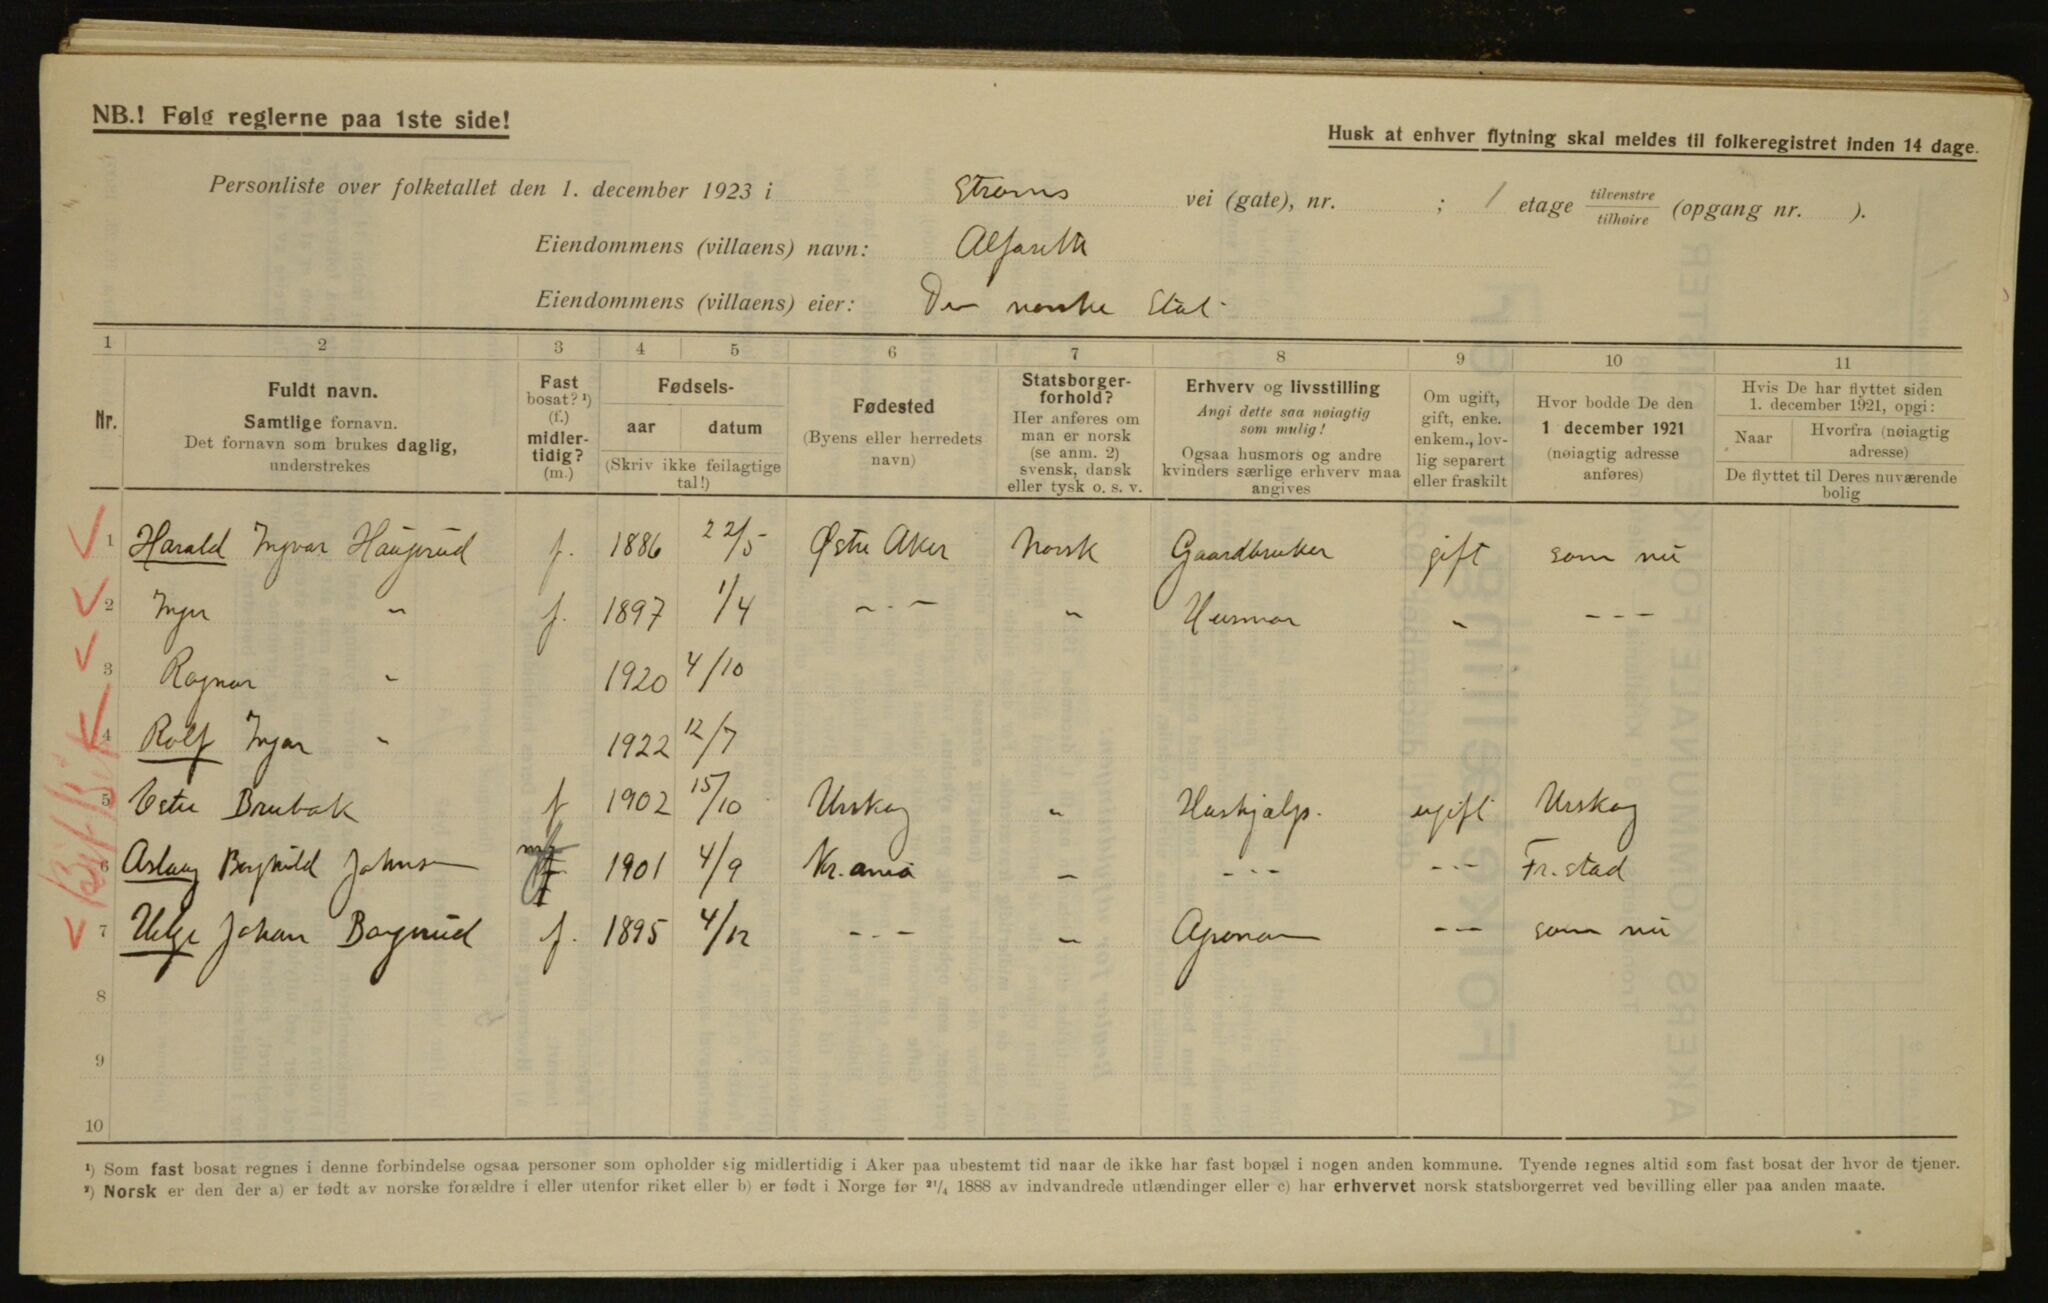 NB.! Følg reglerne paa 1ste side!
Husk at enhver flytning skal meldes til folkeregistret inden 14 dage.
Personliste over folketallet den 1. december 1923 i Strøms vei (gate), nr. ; 1 etage tilvenstre/tilhøire (opgang nr. ).
Eiendommens (villaens) navn: Alfaset
Eiendommens (villaens) eier: Den norske Stat
1 2 3 4 5 6 7 8 9 10 11
Nr.
Fuldt navn.
Samtlige fornavn.
Det fornavn som brukes daglig, understrekes
Fast bosat? ¹) (f.) midlertidig? (m.)
Fødsels-
aar datum
(Skriv ikke feilagtige tal!)
Fødested
(Byens eller herredets navn)
Statsborgerforhold?
Her anføres om man er norsk (se anm. 2) svensk, dansk eller tysk o. s. v.
Erhverv og livsstilling
Angi dette saa nøiagtig som mulig!
Ogsaa husmors og andre kvinders særlige erhverv maa angives
Om ugift, gift, enke. enkem., lovlig separert eller fraskilt
Hvor bodde De den 1 december 1921 (nøiagtig adresse anføres)
Hvis De har flyttet siden 1. december 1921, opgi:
Naar Hvorfra (nøiagtig adresse)
De flyttet til Deres nuværende bolig
1 Harald Ingvar Haugerud f. 1886 22/5 Østre Aker Norsk Gaardbruker gift som nu
2 Inger " f. 1897 1/4 - - - " Husmor " - - -
3 Ragnar " 1920 4/10
4 Rolf Ingar " 1922 12/7
5 Brubak f 1902 15/10 Urskog " Hushjælp. ugift Urskog
6 Aslaug Borghild Johnsen 1901 4/9 Kr.ania " - - - - - - Fr.stad
7 Helge Johan f. 1895 4/12 - - - " Agronom - - - som nu
8
9
10
¹) Som fast bosat regnes i denne forbindelse ogsaa personer som opholder sig midlertidig i Aker paa ubestemt tid naar de ikke har fast bopæl i nogen anden kommune. Tyende regnes altid som fast bosat der hvor de tjener.
²) Norsk er den der a) er født av norske forældre i eller utenfor riket eller b) er født i Norge før ²¹/₄ 1888 av indvandrede utlændinger eller c) har erhvervet norsk statsborgerret ved bevilling eller paa anden maate.